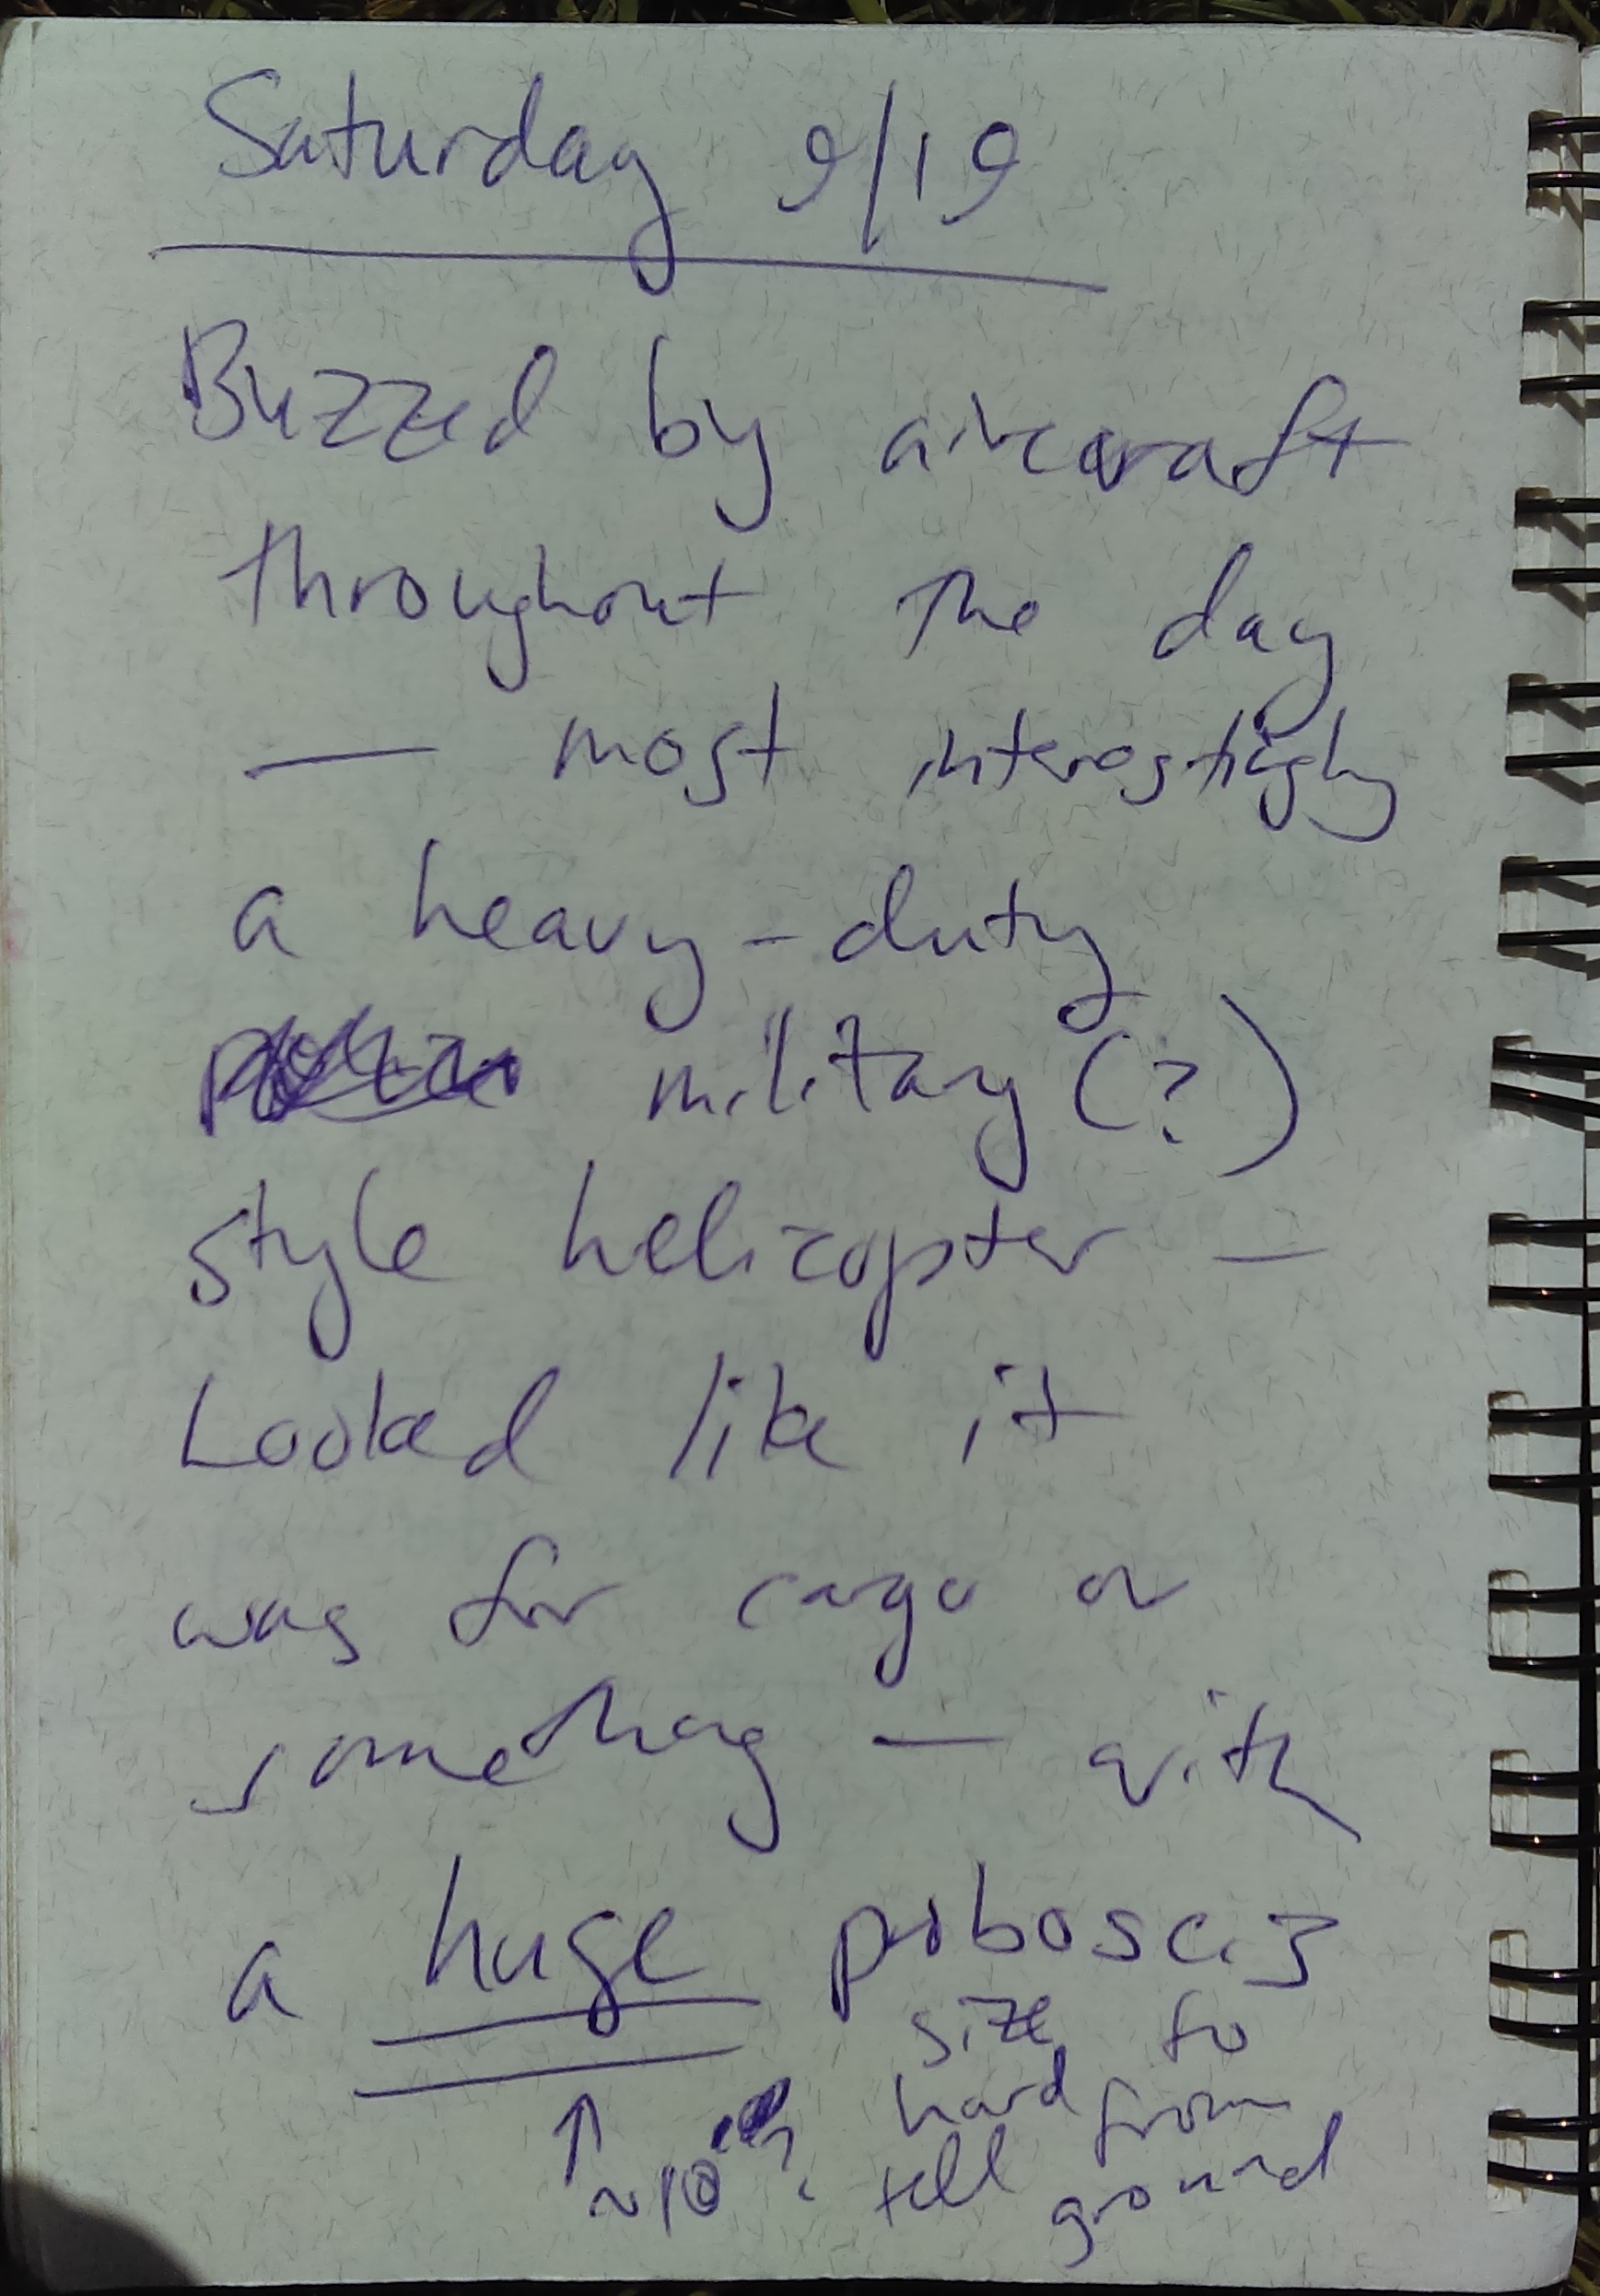 Saturday 9/19
Buzzed by aircraft
throughout the day
— most interestingly
a heavy-duty
military (?)
style helicopter —
Looked like it
was for cargo or
something — with
a huge proboscis
↑ ~10 ? size hard to
tell from ground